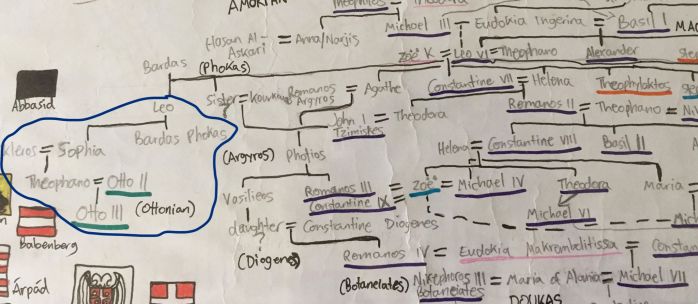 AMORIAN
Theophilos = Theodora
Michael III Eudokia Ingerina = Basil I MAC
Hasan Al-Askari = Anna/Narjis
Zoë K = Leo VI = Theophano Alexander
Bardas (Phokas)
Abbasid
Leo
Sister = Kourkouas
Romanos Argyros Agathe
Constantine VII = Helena Theophylaktos
Romanos II = Theophano = Ni
Bardas Phokas
John I Tzimiskes = Theodora
kleros = Sophia
(Argyros) Photios
Helena = Constantine VIII Basil II
Theophano = Otto II
Otto III (Ottonian)
Vasilieos
Romanos III
Constantine IX
Zoë = Michael IV Theodora Maria
Michael VI
Babenberg
daughter = Constantine Diogenes
?
(Diogenes)
Romanos IV = Eudokia Makrembolitissa = Constan
Árpád
(Botaneiates) Nikephoros III Botaneiates = Maria of Alania = Michael VII
DOUKAS